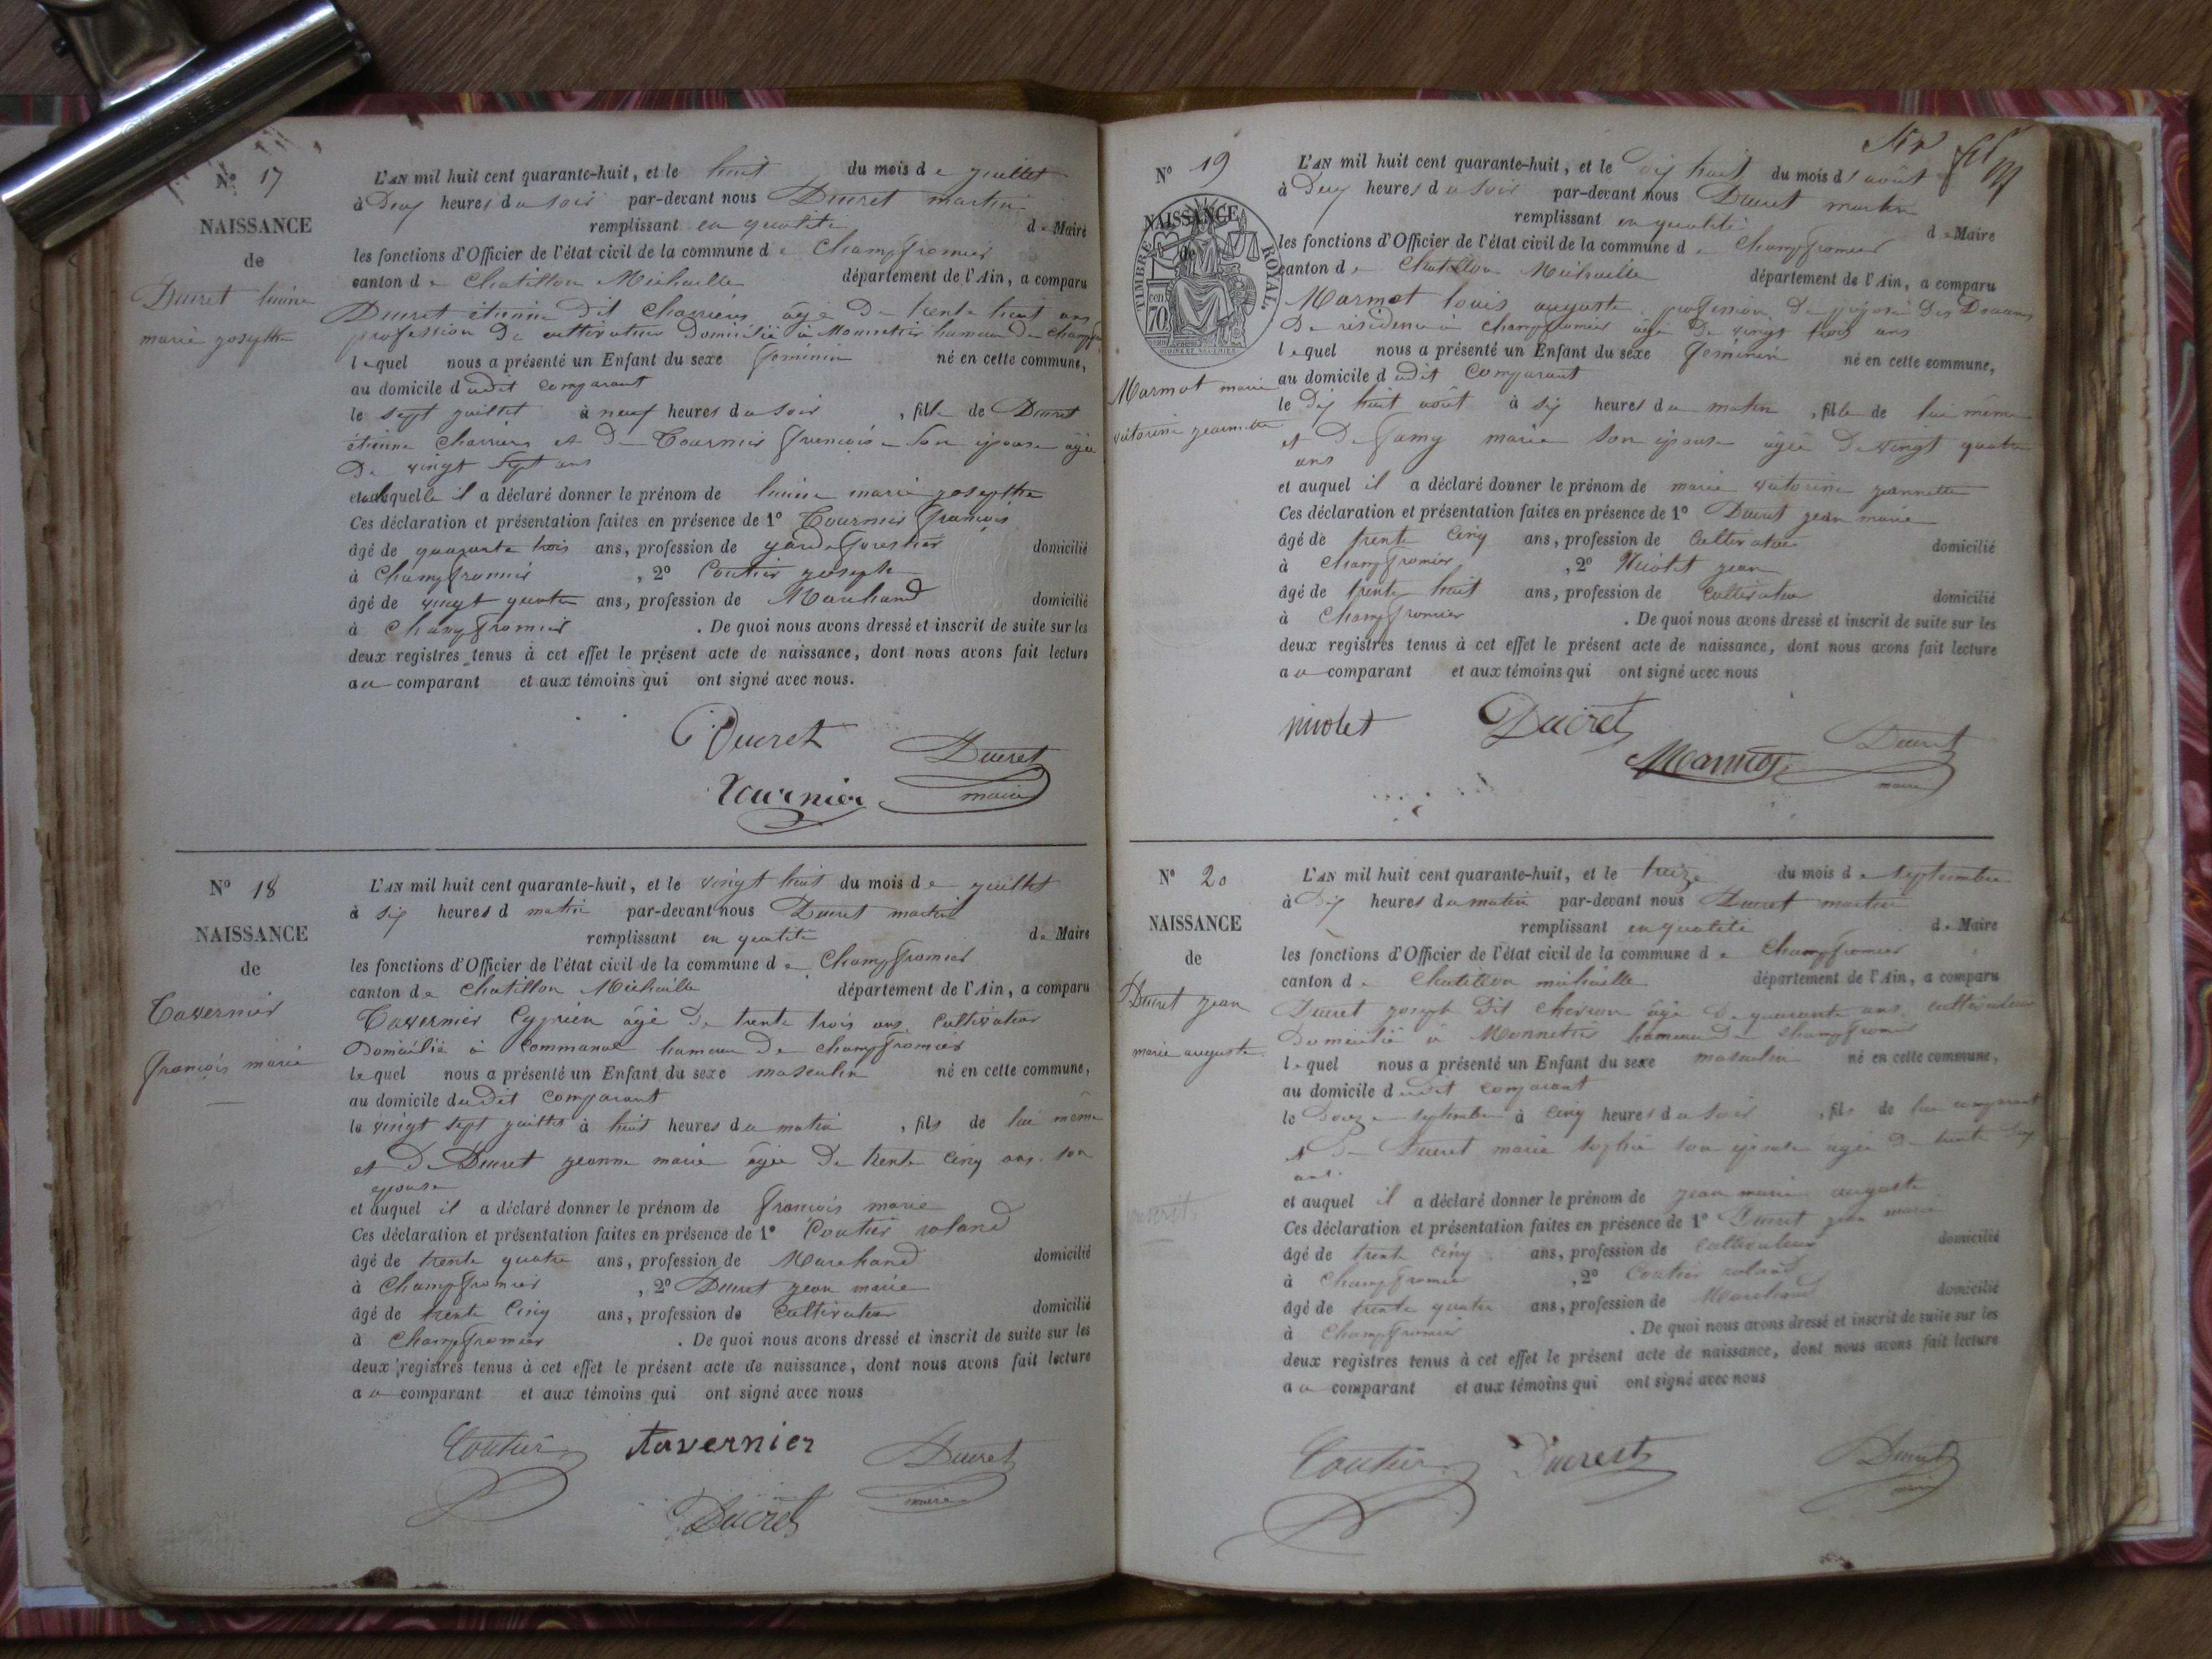 N° 17
NAISSANCE
de
Ducret
marie josephte
L'AN mil huit cent quarante-huit, et le huit du mois de juillet
à Deux heures du soir par-devant nous Ducret martin
remplissant en qualité de Maire
les fonctions d'Officier de l'état civil de la commune de Champfromier
canton de Chatillon Michaille département de l'Ain, a comparu
Ducret étienne dit Charriere âgé De trente huit ans
profession De cultivateur Domicilié à Monnetier hameau De
lequel nous a présenté un Enfant du sexe féminin né en cette commune,
au domicile dudit Comparant
le sept juillet à neuf heures du soir , fille de Ducret
étienne Charriere et De Tournier françoise Son épouse âgée
De vingt Sept ans
et laquelle il a déclaré donner le prénom de marie josephte
Ces déclaration et présentation faites en présence de 1° Tournier françois
âgé de quarante trois ans, profession de garde forestier domicilié
à Champfromier , 2° Coutier joseph
âgé de vingt quatre ans, profession de Marchand domicilié
à Champfromier . De quoi nous avons dressé et inscrit de suite sur les
deux registres tenus à cet effet le présent acte de naissance, dont nous avons fait lecture
au comparant et aux témoins qui ont signé avec nous.
Ducret
Ducret
Tournier
maire
N° 18
NAISSANCE
de
Tavernier
françois marie
L'AN mil huit cent quarante-huit, et le vingt huit du mois de juillet
à six heures d matin par-devant nous Ducret martin
remplissant en qualité de Maire
les fonctions d'Officier de l'état civil de la commune de Champfromier
canton de Chatillon Michaille département de l'Ain, a comparu
Tavernier Cyprien âgé De trente trois ans Cultivateur
Domicilié à Communal hameau De champfromier
lequel nous a présenté un Enfant du sexe masculin né en cette commune,
au domicile dudit Comparant
le vingt sept juillet à huit heures du matin , fils de lui même
et De Ducret jeanne marie âgée De trente Cinq ans son
epouse
et auquel il a déclaré donner le prénom de françois marie
Ces déclaration et présentation faites en présence de 1° Coutier roland
âgé de trente quatre ans, profession de Marchand domicilié
à Champfromier , 2° Ducret jean marie
âgé de trente Cinq ans, profession de Cultivateur domicilié
à Champfromier . De quoi nous avons dressé et inscrit de suite sur les
deux registres tenus à cet effet le présent acte de naissance, dont nous avons fait lecture
au comparant et aux témoins qui ont signé avec nous
Coutier tavernier Ducret
maire
Ducret
N° 19
NAISSANCE
de
TIMBRE ROYAL
cen 70
Marmot marie
victorine jeannette
L'AN mil huit cent quarante-huit, et le Dix huit du mois d'août
à Deux heures du soir par-devant nous Ducret martin
remplissant en qualité de Maire
les fonctions d'Officier de l'état civil de la commune de Champfromier
canton de Chatillon Michaille département de l'Ain, a comparu
Marmot louis auguste profession De préposé Des Douanes
De résidence à Champfromier âgé De vingt trois ans
lequel nous a présenté un Enfant du sexe féminin né en cette commune,
au domicile dudit Comparant
le Dix huit août à six heures du matin , fille de lui même
et De famy marie Son épouse âgée De vingt quatre
ans
et auquel il a déclaré donner le prénom de marie victorine jeannette
Ces déclaration et présentation faites en présence de 1° Ducret jean marie
âgé de trente Cinq ans, profession de Cultivateur domicilié
à Champfromier , 2° Nicolet jean
âgé de trente huit ans, profession de Cultivateur domicilié
à Champfromier . De quoi nous avons dressé et inscrit de suite sur les
deux registres tenus à cet effet le présent acte de naissance, dont nous avons fait lecture
au comparant et aux témoins qui ont signé avec nous
nicolet Ducret Ducret
Marmot
maire
N° 20
NAISSANCE
de
Ducret jean
marie auguste
L'AN mil huit cent quarante-huit, et le treize du mois de septembre
à Dix heures du matin par-devant nous Ducret martin
remplissant en qualité de Maire
les fonctions d'Officier de l'état civil de la commune de Champfromier
canton de Chatillon michaille département de l'Ain, a comparu
Ducret joseph Dit âgé De quarante ans cultivateur
Domicilié à Monnetier hameau De champfromier
lequel nous a présenté un Enfant du sexe masculin né en cette commune,
au domicile dudit comparant
le Douze septembre à Cinq heures du soir , fils de lui comparant
et De Ducret marie sophie son épouse âgée De trente
ans.
et auquel il a déclaré donner le prénom de jean marie auguste
Ces déclaration et présentation faites en présence de 1° Ducret jean marie
âgé de trente Cinq ans, profession de Cultivateur domicilié
à Champfromier , 2° Coutier roland
âgé de trente quatre ans, profession de Marchand domicilié
à Champfromier . De quoi nous avons dressé et inscrit de suite sur les
deux registres tenus à cet effet le présent acte de naissance, dont nous avons fait lecture
au comparant et aux témoins qui ont signé avec nous
Coutier Ducret Ducret
maire